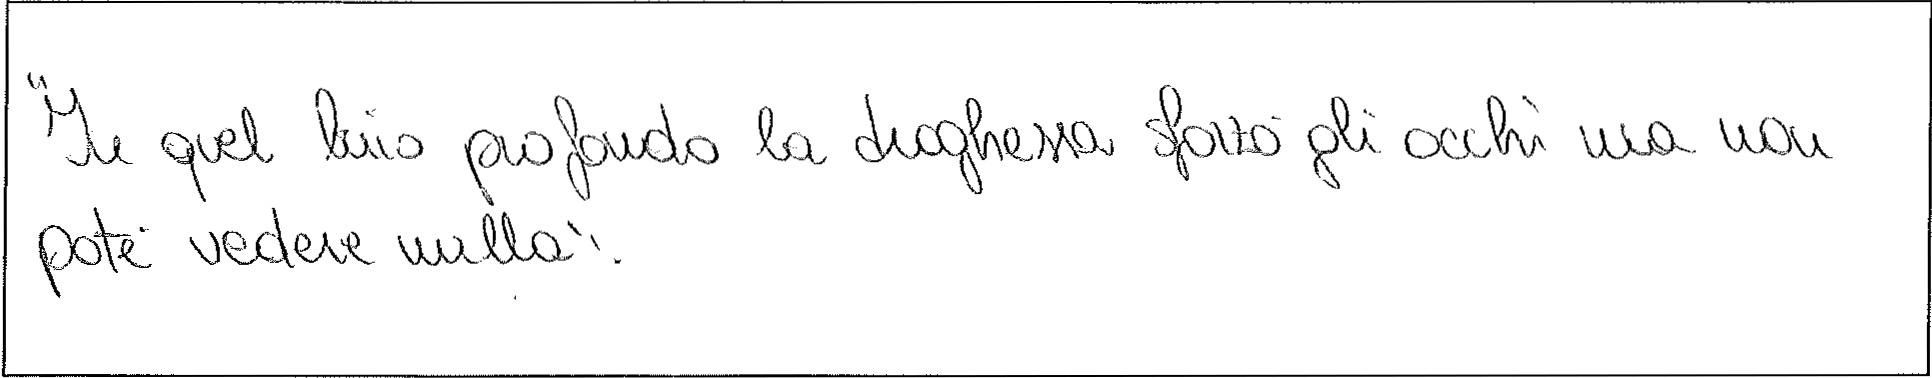 "In quel buio profondo la draghessa sforzò gli occhi ma non
poté vedere nulla".